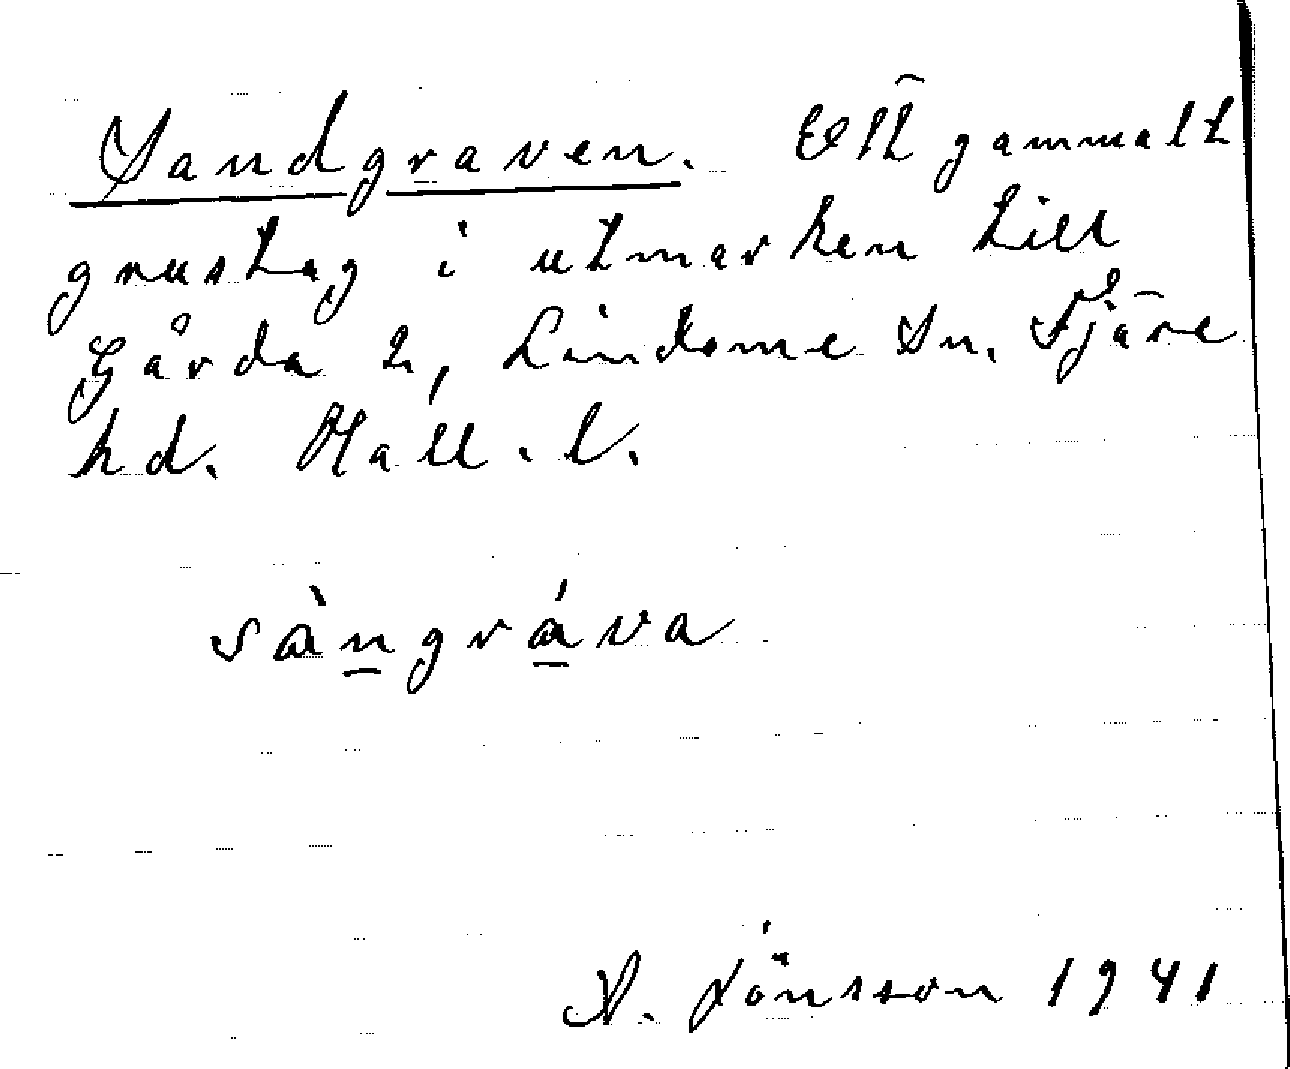 Sandgraven. Ett gammalt
grustag i utmarken till
Gårda 2, Lindome Sn. Fjäre
hd. Hall. l.
sàngráva
N. Jönsson 1941